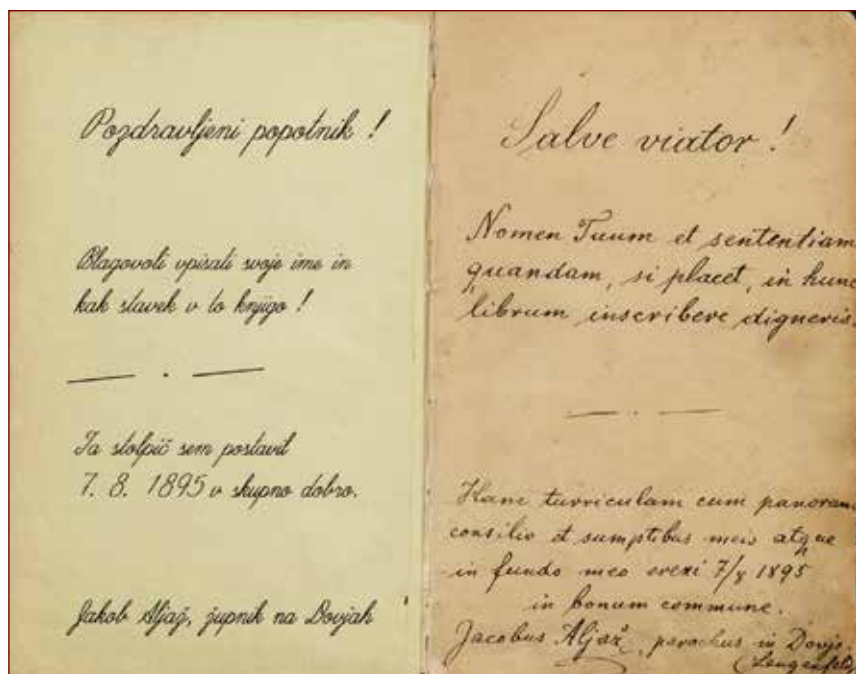 Pozdravljeni popotnik !
Blagovoli vpisati svoje ime in
kak stavek v to knjigo !
Ta stolpič sem postavil
7. 8. 1895 v skupno dobro.
Jakob Aljaž, župnik na Dovjah
Salve viator !
Nomen Tuum et sententiam
quandam, si placet, in hunc
librum inscribere digneris.
Hanc turriculam cum panoram
consilio et sumptibus meis atque
in fundo meo erexi 7/8 1895
in bonum commune.
Jacobus Aljaž, parochus in Dovje.
(Lengenfeld